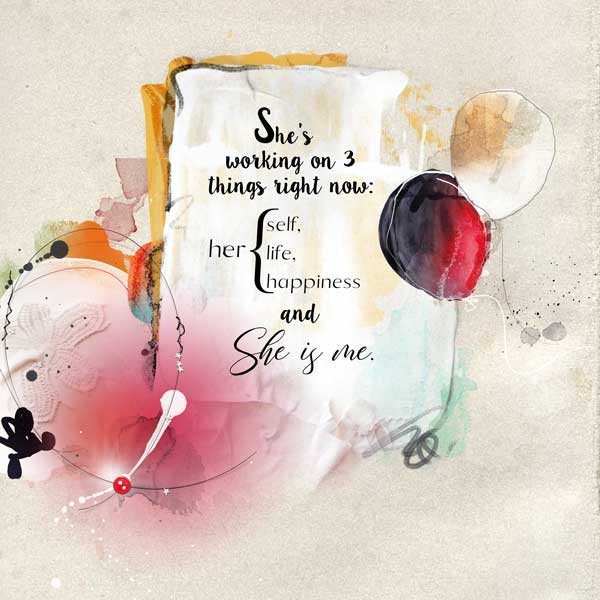 She's
working on 3
things right now:
her { self,
life,
happiness
and
She is me.